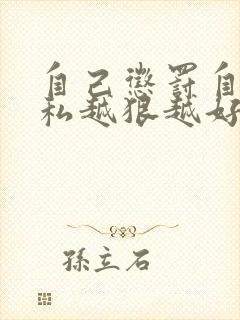 自己懲罰自
私越狠越好
孫立石